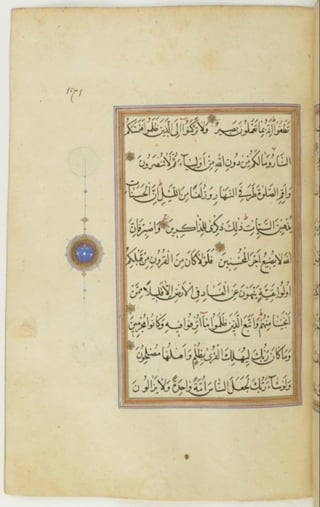 تَطْغَوْا إِنَّهُ بِمَا تَعْمَلُونَ بَصِيرٌ وَلَا تَرْكَنُوا إِلَى الَّذِينَ ظَلَمُوا فَتَمَسَّكُمُ
النَّارُ وَمَا لَكُمْ مِنْ دُونِ اللَّهِ مِنْ أَوْلِيَاءَ ثُمَّ لَا تُنْصَرُونَ
وَأَقِمِ الصَّلٰوةَ طَرَفَيِ النَّهَارِ وَزُلَفًا مِنَ اللَّيْلِ إِنَّ الْحَسَنَاتِ
يُذْهِبْنَ السَّيِّئَاتِ ذَلِكَ ذِكْرَى لِلذَّاكِرِينَ وَاصْبِرْ فَإِنَّ
اللَّهَ لَا يُضِيعُ أَجْرَ الْمُحْسِنِينَ فَلَوْلَا كَانَ مِنَ الْقُرُونِ مِنْ قَبْلِكُمْ
أُولُوا بَقِيَّةٍ يَنْهَوْنَ عَنِ الْفَسَادِ فِي الْأَرْضِ إِلَّا قَلِيلًا مِمَّنْ
أَنْجَيْنَا مِنْهُمْ وَاتَّبَعَ الَّذِينَ ظَلَمُوا مَا أُتْرِفُوا فِيهِ وَكَانُوا مُجْرِمِينَ
وَمَا كَانَ رَبُّكَ لِيُهْلِكَ الْقُرَى بِظُلْمٍ وَأَهْلُهَا مُصْلِحُونَ
وَلَوْ شَاءَ رَبُّكَ لَجَعَلَ النَّاسَ أُمَّةً وَاحِدَةً وَلَا يَزَالُونَ